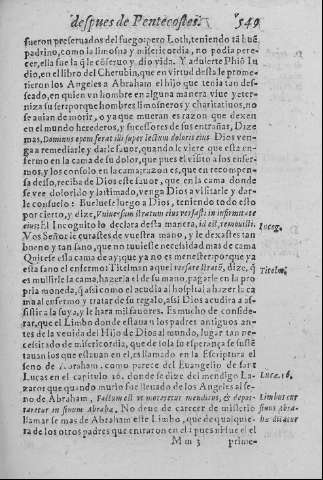 despues de Pentecostes. 549
fueron preseruados del fuego: pero Loth, teniendo tã buẽ
padrino, como la limosna y misericordia, no podia pere-
cer, ella fue la q̃ le cõseruo y dio vida. Y aduierte Phíõ Iu
dio, en el libro del Cherubin, que en virtud desta le prome-
tieron los Angeles a Abraham el hijo que tenia tan des-
seado, en quien vn hombre en alguna manera viue y eter-
niza su ser: porque hombres limosneros y charitatiuos, no
se auian de morir, o ya que mueran es razon que dexen
en el mundo herederos, y successores de sus entrañas, Dize
mas, Dominus opem ferat illi super lectum doloris eius. Dios ven-
ga a remediarle y darle fauor, quando le viere que esta en-
fermo en la cama de su dolor, que pues el visito a los enfer-
mos, y los consolo en la cama; razon es, que en recompen-
sa desso, reciba de Dios este fauor, que en la cama donde
se vee dolorido y lastimado, venga Dios a visitarle y dar-
le consuelo: Bueluese luego a Dios, teniendo todo esto
por cierto, y dize, Vniuersum stratum eius versasti in infirmitate
eius: El Incognito lo declara desta manera, id est, remouisti. Incog.
Vos Señor le curastes de vuestra mano, y le dexastes tan
bueno y tan sano, que no tuuiesse necessidad mas de cama
Quitese esta cama de ay; que ya no es menester: porque ya
esta sano el enfermo: Titelman aquel versaste stratũ, dize, q̃ Titelm.
es mullirle la cama, hazerla el de su mano, pagarle en la pro
pria moneda, q̃ assi como el acudia al hospital a hazer la ca
ma al enfermo y tratar de su regalo, assi Dios acudira a as-
sistir a la suya, y le hara mil fauores. Es mucho de conside-
rar, que el Limbo donde estauan los padres antiguos an-
tes de la venida del Hijo de Dios al mundo, lugar tan ne-
cessitado de misericordia, que de sola su esperança se sustẽ
tauan los que estauan en el, es llamado en la Escriptura el
seno de Abraham, como parece del Euangelio de sant
Lucas en el capitulo 16. donde se dize del mendigo La- Lucæ. 16.
zaro: que quando murio fue lleuado de los Angeles al se-
no de Abraham, Factum est vt moreretur mendicus, & depor- Limbo cur
taretur in sinum Abrahæ. No deue de carecer de misterio sinus Abra-
llamarse mas de Abraham este Limbo, que de qualquie- hæ dicatur
ra de los otros padres que entraron en el: pues ni fue el el
Mm 3 prime-